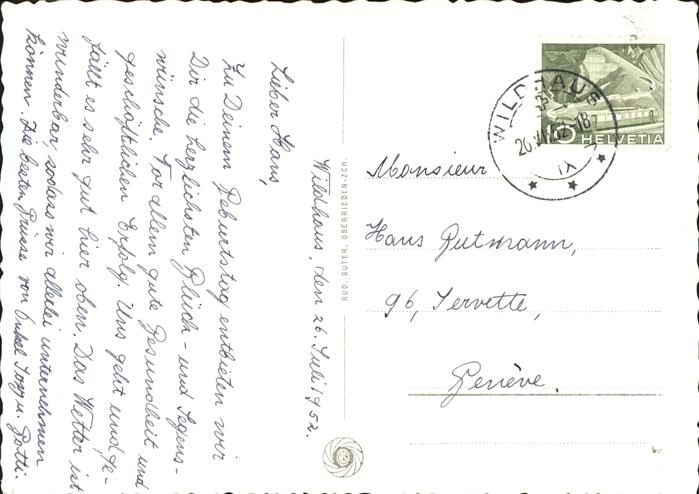 Wildhaus, den 26. Juli 1952.
Lieber Hans,
Zu Deinem Geburtstag entbieten wir
Dir die herzlichsten Glück- und Segens-
wünsche. Vor allem gute Gesundheit und
geschäftlichen Erfolg. Uns geht und ge-
fällt es sehr gut hier oben. Das Wetter ist
wunderbar, sodass wir allerlei unternehmen
können. Die besten Grüsse von Onkel u. Gotti.
RUD. SUTER, OBERRIEDEN-ZCH.
WILDHAUS
26.VII.52-18
IX
HELVETIA
Monsieur
Hans Gutmann,
96, Servette,
Genève.